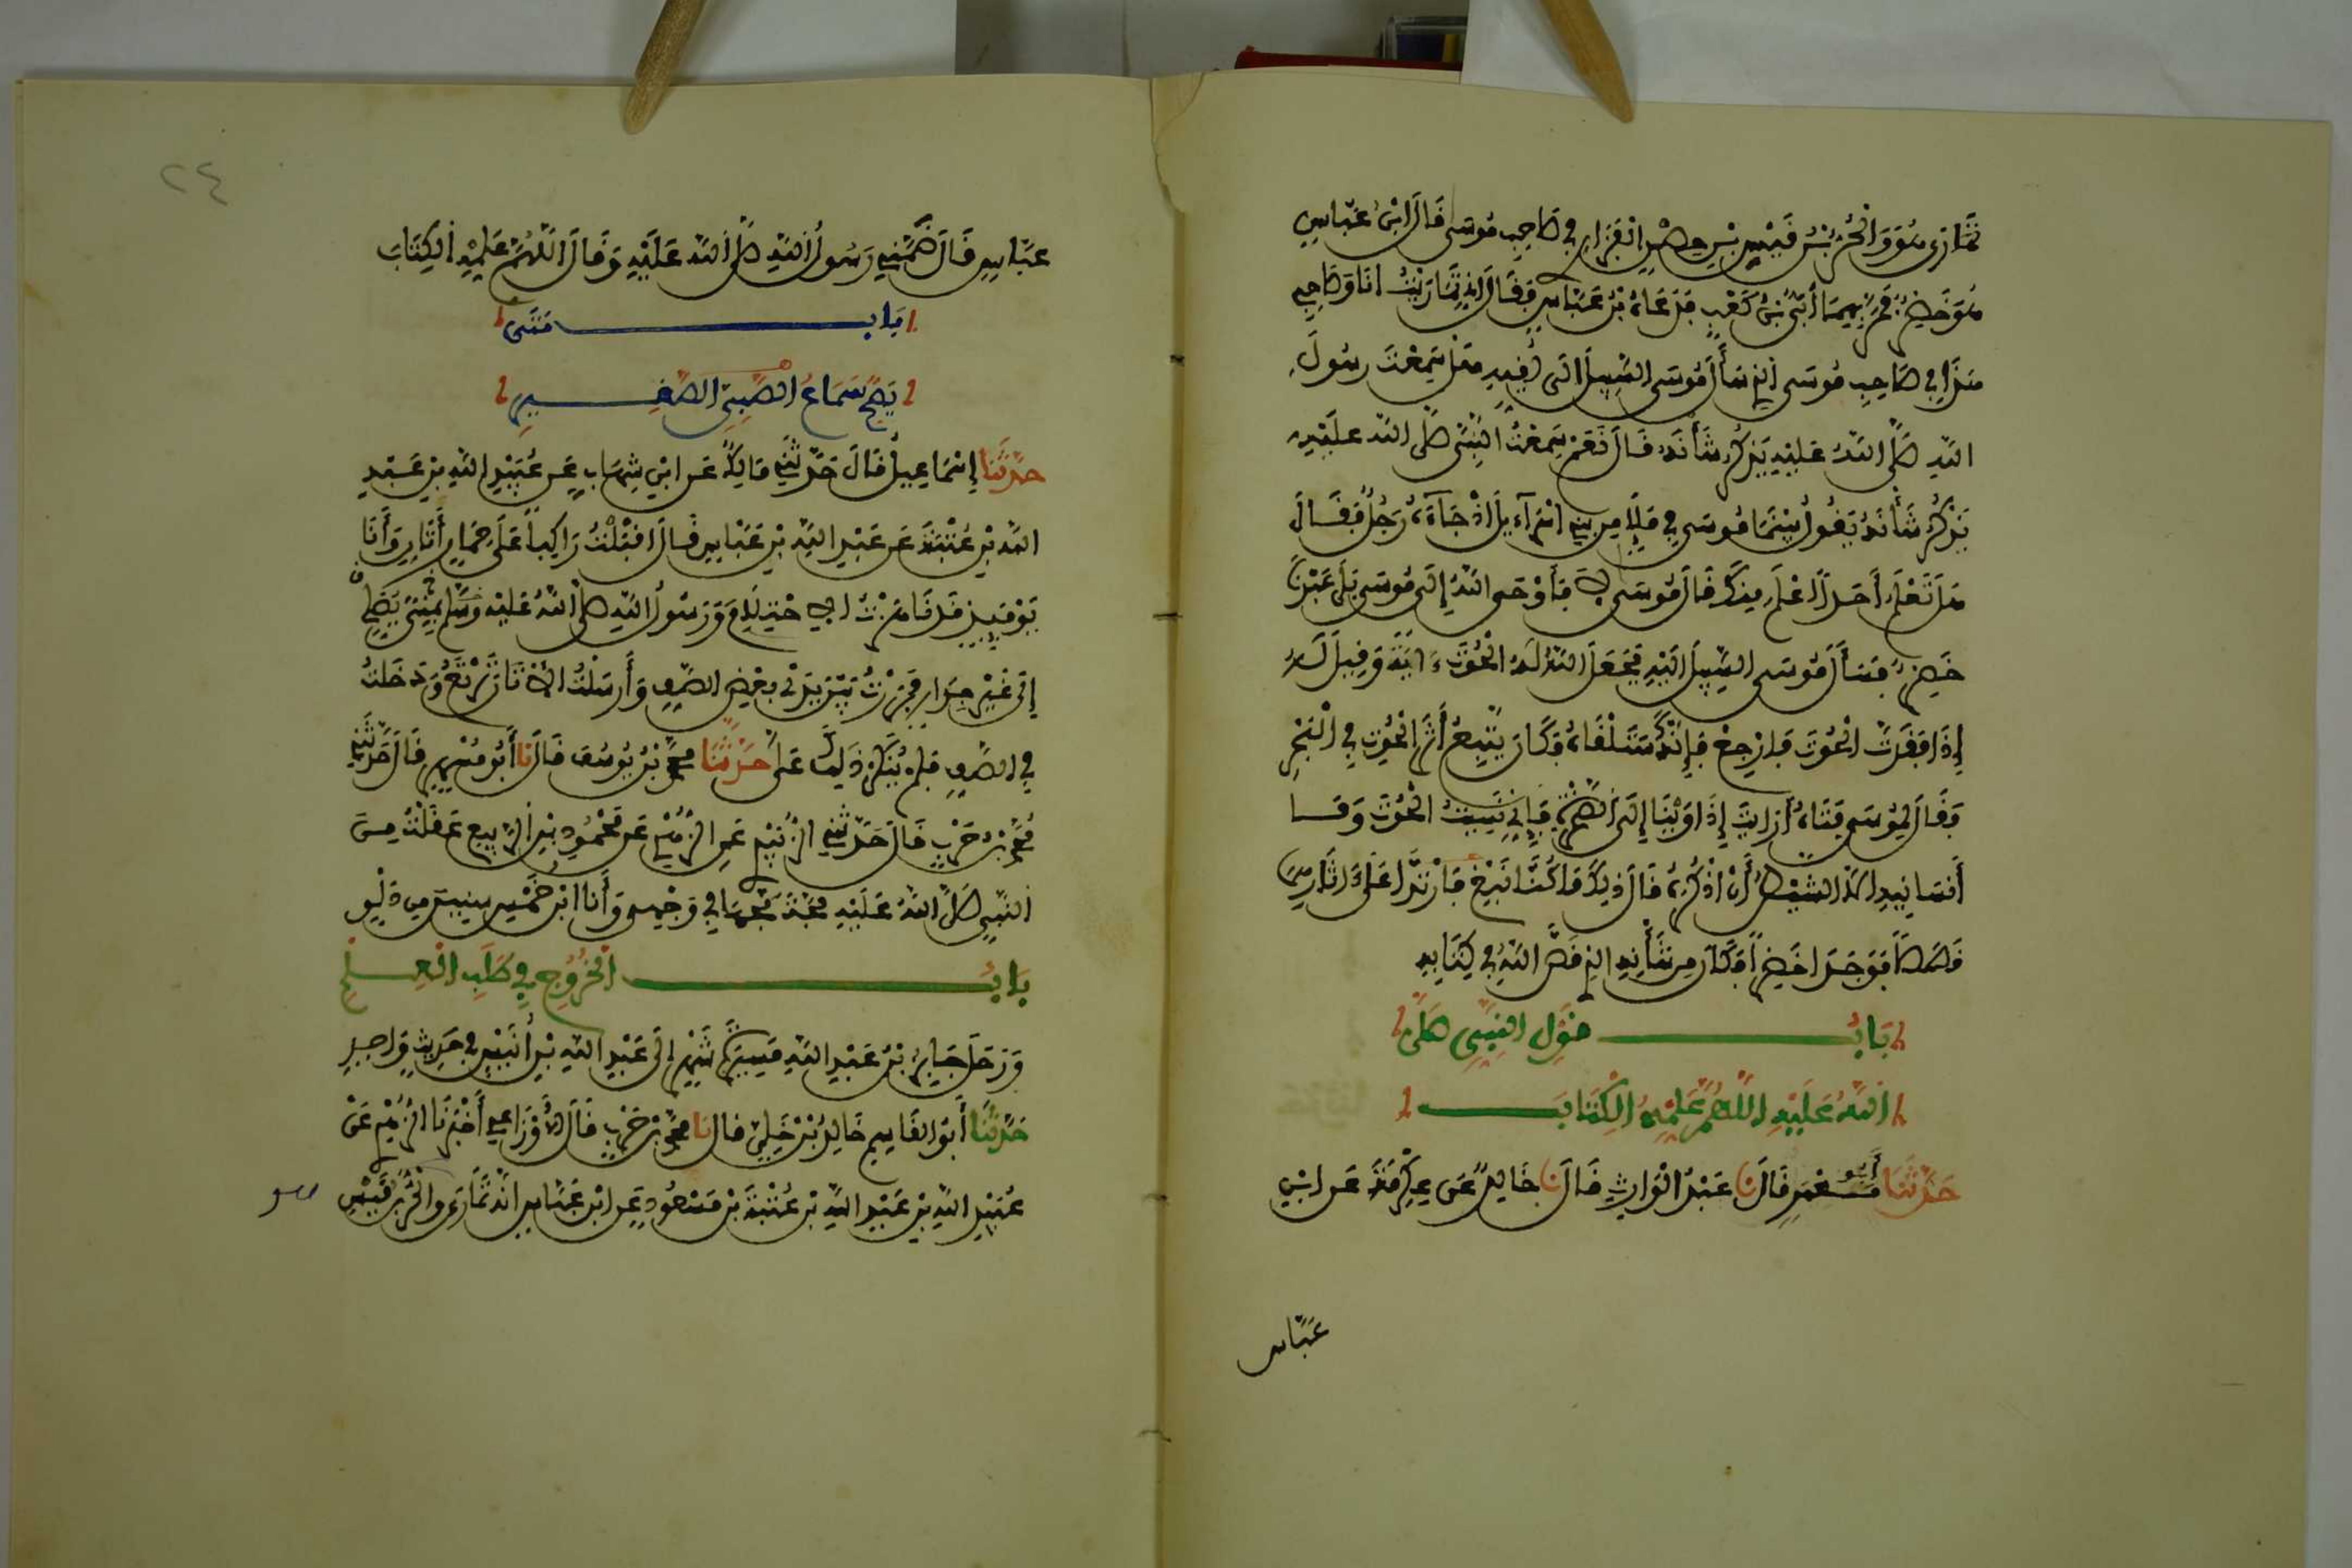 تَمَارَى هُوَ وَالْحُرُّ بْنُ قَيْسِ بْنِ حِصْنٍ الْفَزَارِي في صَاحِبِ مُوسَى قَالَ ابْنُ عَبَّاسٍ
هُوَ خَضِرٌ فَمَرَّ بِهِمَا أُبَيُّ بْنُ كَعْبٍ فَدَعَاهُ بْنُ عَبَّاسٍ فَقَالَ إِنِّي تَمَارَيْتُ أَنَا وَصَاحِبِي
هَذَا في صَاحِبِ مُوسَى الذي سَأَلَ مُوسَى السَّبِيلَ إلَى لُقِيِّهِ هَلْ سَمِعْتَ رَسُولَ
اللَّهِ صَلَّى اللَّهُ عَلَيْهِ يَذْكُرُ شَأْنَهُ قَالَ نَعَمْ سَمِعْتُ النَّبِيَّ صَلَّى اللَّهُ عَلَيْهِ
يَذْكُرُ شَأْنَهُ يَقُولُ بَيْنَمَا مُوسَى فِي مَلَإٍ مِنْ بَنِي إِسْرَآءِيلَ إِذْ جَآءَهُ رَجُلٌ فَقَالَ
هَلْ تَعْلَمُ أَحَداً أَعْلَمَ مِنْكَ قَالَ مُوسَى لَا فَأَوْحَى اللَّهُ إِلَى مُوسَى بَلَى عَبْدُنَا
خَضِرٌ فَسَأَلَ مُوسَى السَّبِيلَ إِلَيْهِ فَجَعَلَ اللَّهُ لَهُ الْحُوتَ ءَايَةً وَقِيلَ لَهُ
إِذَا فَقَدْتَ الْحُوتَ فَارْجِعْ فَإِنَّكَ سَتَلْقَاهُ فَكَانَ يَتْبَعُ أَثَرَ الْحُوتِ فِي الْبَحْرِ
فَقَالَ لِمُوسَى فَتَاهُ أَرَأَيْتَ إِذْ أَوَيْنَا إِلَى الصَّخْرَةِ فَإِنِّي نَسِيتُ الْحُوتَ وَمَا
أَنْسَانِيهِ إِلَّا الشَّيْطَانُ أَنْ أَذْكُرَهُ قَالَ ذَلِكَ مَا كُنَّا نَبْغِ فَارْتَدَّا عَلَى ءَاثَارِهِمَا
قَصَصاً فَوَجَدَا خَضِراً فَكَانَ مِنْ شَأْنِهِمَا الذِي قَصَّ اللَّهُ فِي كِتَابِهِ
بَابُ قَوْلِ النَّبِيِّ صَلَّى
اللَّهُ عَلَيْهِ اللَّهُمَّ عَلِّمْهُ الْكِتَابَ
حَدَّثَنَا أَبُو مَعْمَرٍ قَالَ نا عَبْدُ الْوَارِثِ قَالَ نا خَالِدٌ عَنْ عِكْرِمَةَ عَنِ ابْنِ
عَبَّاسٍ
٢٤
عَبَّاسٍ قَالَ ضَمَّنِي رَسُولُ اللَّهِ صَلَّى اللَّهُ عَلَيْهِ وَقَالَ اللَّهُمَّ عَلِّمْهُ الْكِتَابَ
بَابُ مَتَى
يَصِحُّ سَمَاعُ الصَّبِيِّ الصَّغِيرِ
حَدَّثَنَا إِسْمَاعِيلُ قَالَ حَدَّثَنِي مَالِكٌ عَنِ ابْنِ شِهَابٍ عَنْ عُبَيْدِ اللَّهِ بْنِ عَبْدِ
اللَّهِ بْنِ عُتْبَةَ عَنْ عَبْدِ اللَّهِ بْنِ عَبَّاسٍ قَالَ أَقْبَلْتُ رَاكِباً عَلَى حِمَارٍ أَتَانٍ وَأَنَا
يَوْمَئِذٍ قَدْ نَاهَزْتُ الِاحْتِلَامَ وَرَسُولُ اللَّهِ صَلَّى اللَّهُ عَلَيْهِ وَسَلَّمَ بِمِنًى يُصَلِّي
إِلَى غَيْرِ جِدَارٍ فَمَرَرْتُ بَيْنَ يَدَيْ بَعْضِ الصَّفِّ وَأَرْسَلْتُ الْأَتَانَ تَرْتَعُ وَدَخَلْتُ
فِي الصَّفِّ فَلَمْ يُنْكَرْ ذَلِكَ عَلَيَّ حَدَّثَنَا مُحَمَّدُ بْنُ يُوسُفَ قَالَ نا أَبُو مُسْهِرٍ قَالَ حَدَّثَنِي
مُحَمَّدُ بْنُ حَرْبٍ قَالَ حَدَّثَنِي الزُّبَيْدِي عَنِ الزُّهْرِي عَنْ مَحْمُودِ بْنِ الرَّبِيعِ عَقَلْتُ مِنَ
النَّبِيِّ صَلَّى اللَّهُ عَلَيْهِ مَجَّةً مَجَّهَا فِي وَجْهِي وَأَنَا ابْنُ خَمْسِ سِنِينَ مِنْ دَلْوٍ
بَابُ الْخُرُوجِ فِي طَلَبِ الْعِلْمِ
وَرَحَلَ جَابِرُ بْنُ عَبْدِ اللَّهِ مَسِيرَةَ شَهْرٍ إِلَى عَبْدِ اللَّهِ بْنِ أُنَيْسٍ فِي حَدِيثٍ وَاحِدٍ
حَدَّثَنَا أَبُو الْقَاسِمِ خَالِدُ بْنُ خَلِيٍّ قَالَ نا مُحَمَّدُ بْنُ حَرْبٍ قَالَ الْأَوْزَاعِي أَخْبَرَنَا الزُّهْرِي عَنْ
عُبَيْدِ اللَّهِ بْنِ عَبْدِ اللَّهِ بْنِ عُتْبَةَ بْنِ مَسْعُودٍ عَنِ ابْنِ عَبَّاسٍ أَنَّهُ تَمَارَى وَالْحُرُّ بْنُ قَيْسِ